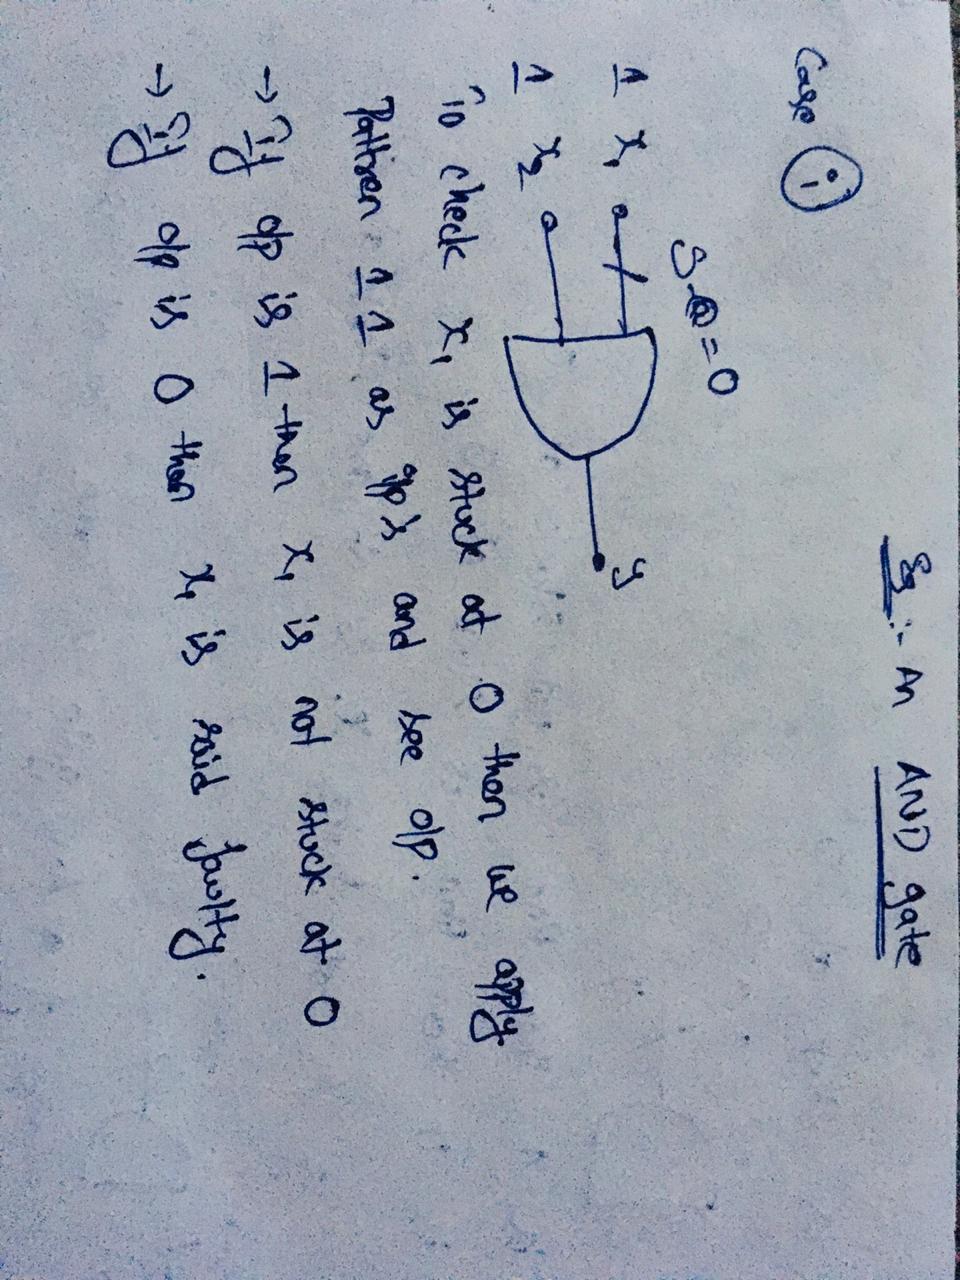 Eg :- An AND gate
Case (i)
S-@=0
1 x₁
y
1 x₂
To check x₁ is stuck at 0 then we apply
Pattren 1 1 as i/p's and see o/p.
→ if o/p is 1 then x₁ is not stuck at 0
→ if o/p is 0 then x₁ is said faulty.